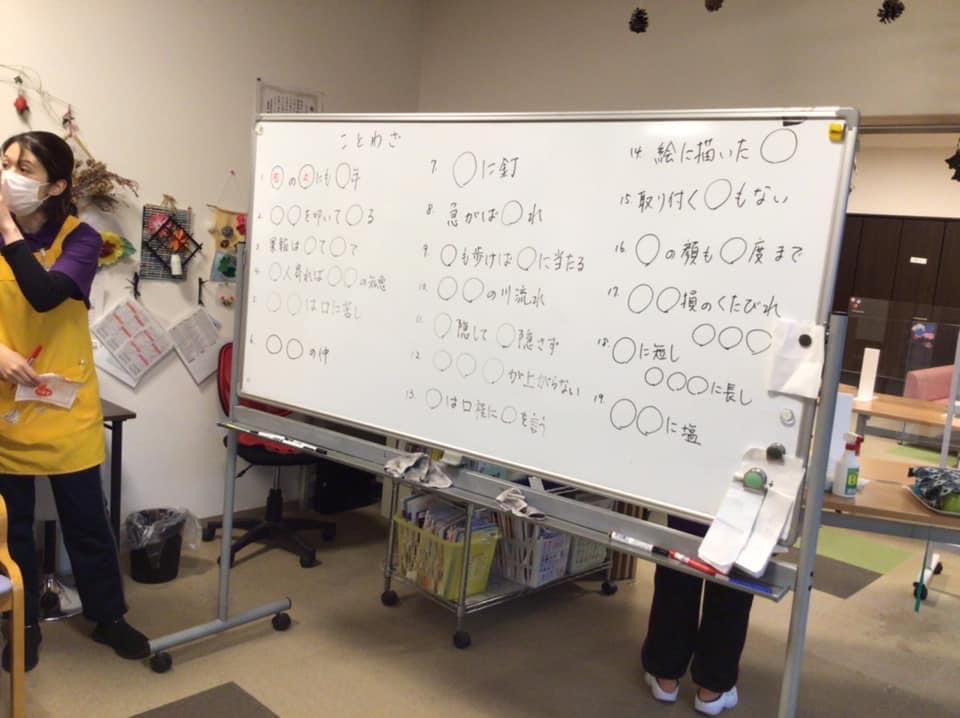 ことわざ
1. 石の上にも○年
2. ○○を叩いて○る
3. 果報は○て○て
4. ○人寄れば○○の知恵
5. ○○は口に苦し
6. ○○の仲
7. ○に釘
8. 急がば○れ
9. ○も歩けば○に当たる
10. ○○の川流れ
11. ○隠して○隠さず
12. ○○○が上がらない
13. ○は口程に○を言う
14. 絵に描いた○
15. 取り付く○もない
16. ○の顔も○度まで
17. ○○損のくたびれ
○○○
18. ○に短し
○○○に長し
19. ○○に塩